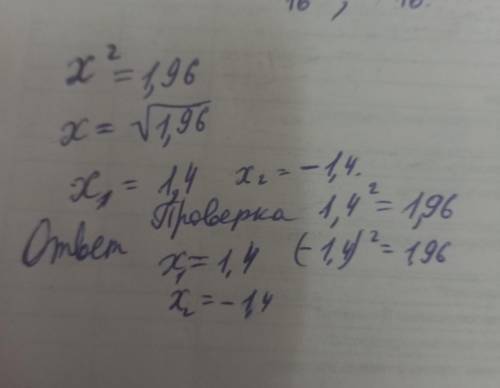 x² = 1,96
x = √1,96
x₁ = 1,4 x₂ = -1,4.
Проверка 1,4² = 1,96
Ответ x₁ = 1,4 (-1,4)² = 1,96
x₂ = -1,4